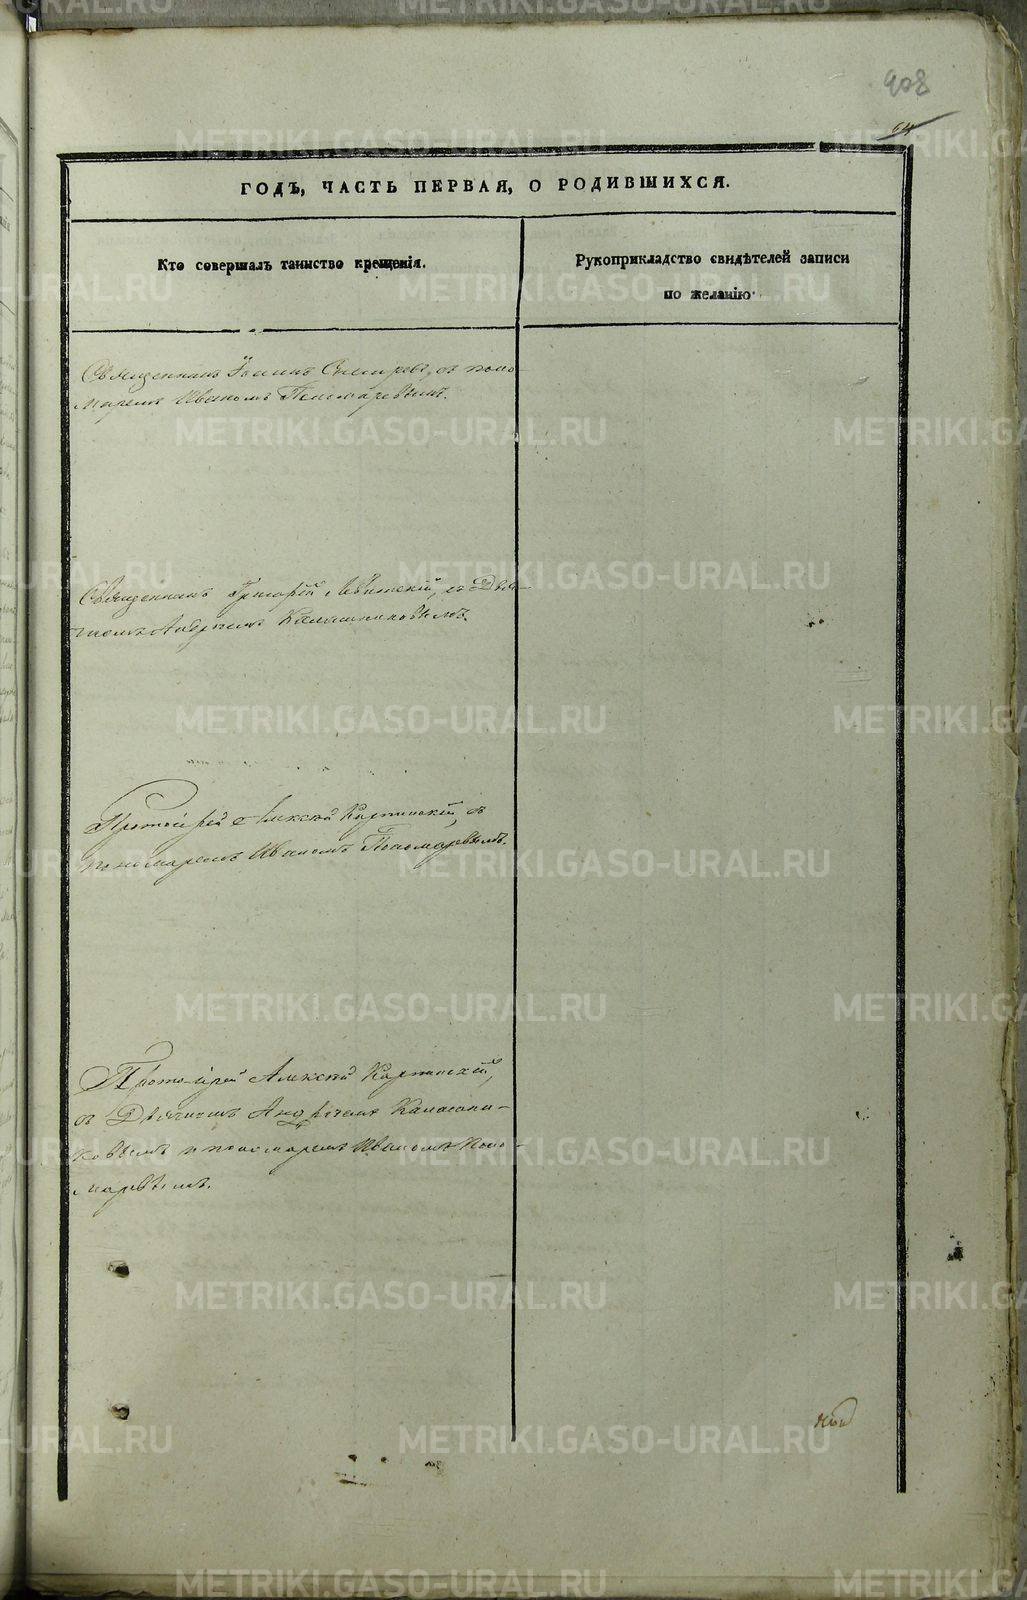 908
64
ГОДЪ, ЧАСТЬ ПЕРВАЯ, О РОДИВШИХСЯ.
Кто совершалъ таинство крещенія.
Рукоприкладство свидѣтелей записи
по желанію
Священникъ Іоаннъ съ поно
маремъ Иваномъ Пономаревымъ.
Священникъ Григорій Левитскій, съ Дья-
Андреемъ Калашниковымъ.
Протоіерей Алексій Карпинскій, съ
пономаремъ Иваномъ Пономаревымъ.
Протоіерей Алексій Карпинскій,
съ Дьячкомъ Андреемъ Калашни-
ковымъ и пономаремъ Иваномъ Поно-
маревымъ.
METRIKI.GASO-URAL.RU